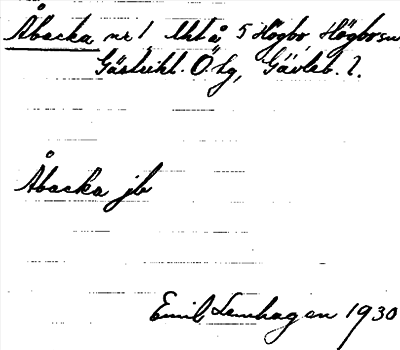 Åbacka nr 1 Utå 5 Högbo, Högbosn
Gästrikl. Ö. tg, Gävleb. l.
Åbacka jb
Emil Lemhagen 1930